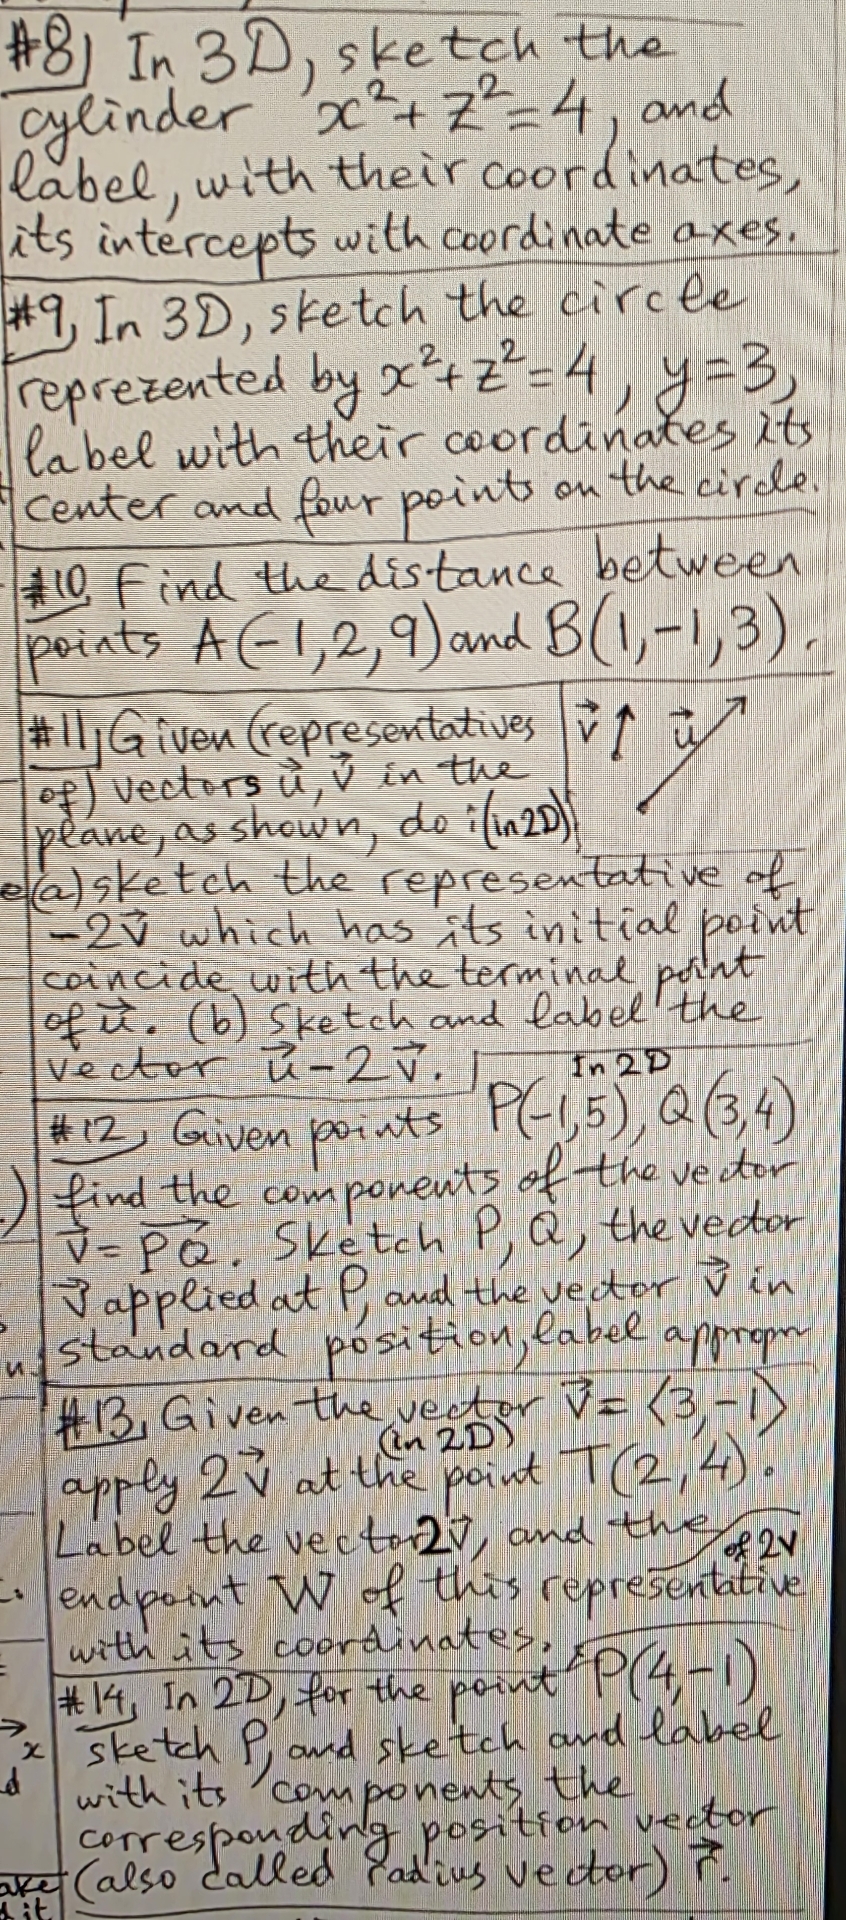 #8) In 3D, sketch the
cylinder x²+z²=4, and
label, with their coordinates,
its intercepts with coordinate axes.
#9, In 3D, sketch the circle
reprezented by x²+z²=4, y=3,
label with their coordinates its
center and four points on the circle.
#10, Find the distance between
points A(-1,2,9) and B(1,-1,3).
#11, Given (representatives
of) vectors u⃗, v⃗ in the
plane, as shown, do: (in 2D)
v⃗ u⃗
(a) sketch the representative of
-2v⃗ which has its initial point
coincide with the terminal point
of u⃗. (b) Sketch and label the
vector u⃗-2v⃗.
In 2D
#12, Given points P(-1,5), Q(3,4)
find the components of the vector
v⃗ = PQ⃗. Sketch P, Q, the vector
v⃗ applied at P, and the vector v⃗ in
standard position, label appropr
#13, Given the vector v⃗ = ⟨3,-1⟩
(in 2D)
apply 2v⃗ at the point T(2,4).
Label the vector 2v⃗, and the
endpoint W of this representative
of 2v
with its coordinates.
#14, In 2D, for the point P(4,-1)
sketch P, and sketch and label
with its components the
corresponding position vector
(also called radius vector) r⃗.